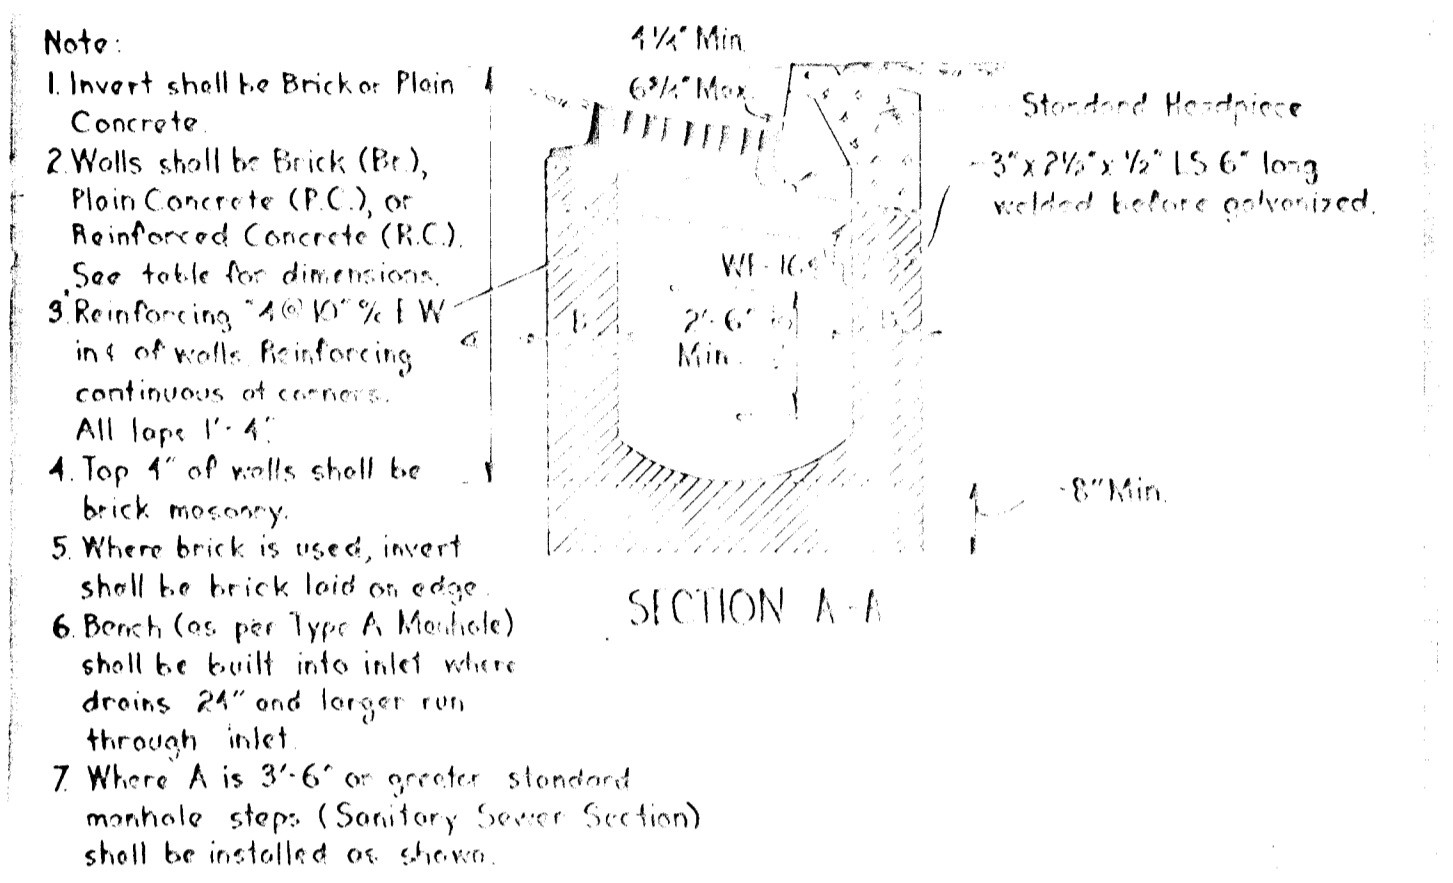 Note:
1. Invert shall be Brick or Plain
Concrete.
2. Walls shall be Brick (Br.),
Plain Concrete (P.C.), or
Reinforced Concrete (R.C.).
See table for dimensions.
3. Reinforcing #4@10" % E W
in ¢ of walls Reinforcing
continuous at corners.
All laps 1'-4".
4. Top 4" of walls shall be
brick masonry.
5. Where brick is used, invert
shall be brick laid on edge.
6. Bench (as per Type A Manhole)
shall be built into inlet where
drains 24" and larger run
through inlet.
7. Where A is 3'-6" or greater standard
manhole steps (Sanitary Sewer Section)
shall be installed as shown.
4 1/4" Min.
6 3/4" Max.
Standard Headpiece
3" x 2 1/2" x 1/2" LS 6" long
welded before galvanized.
B
2'-6"
Min.
B
8" Min.
SECTION A-A